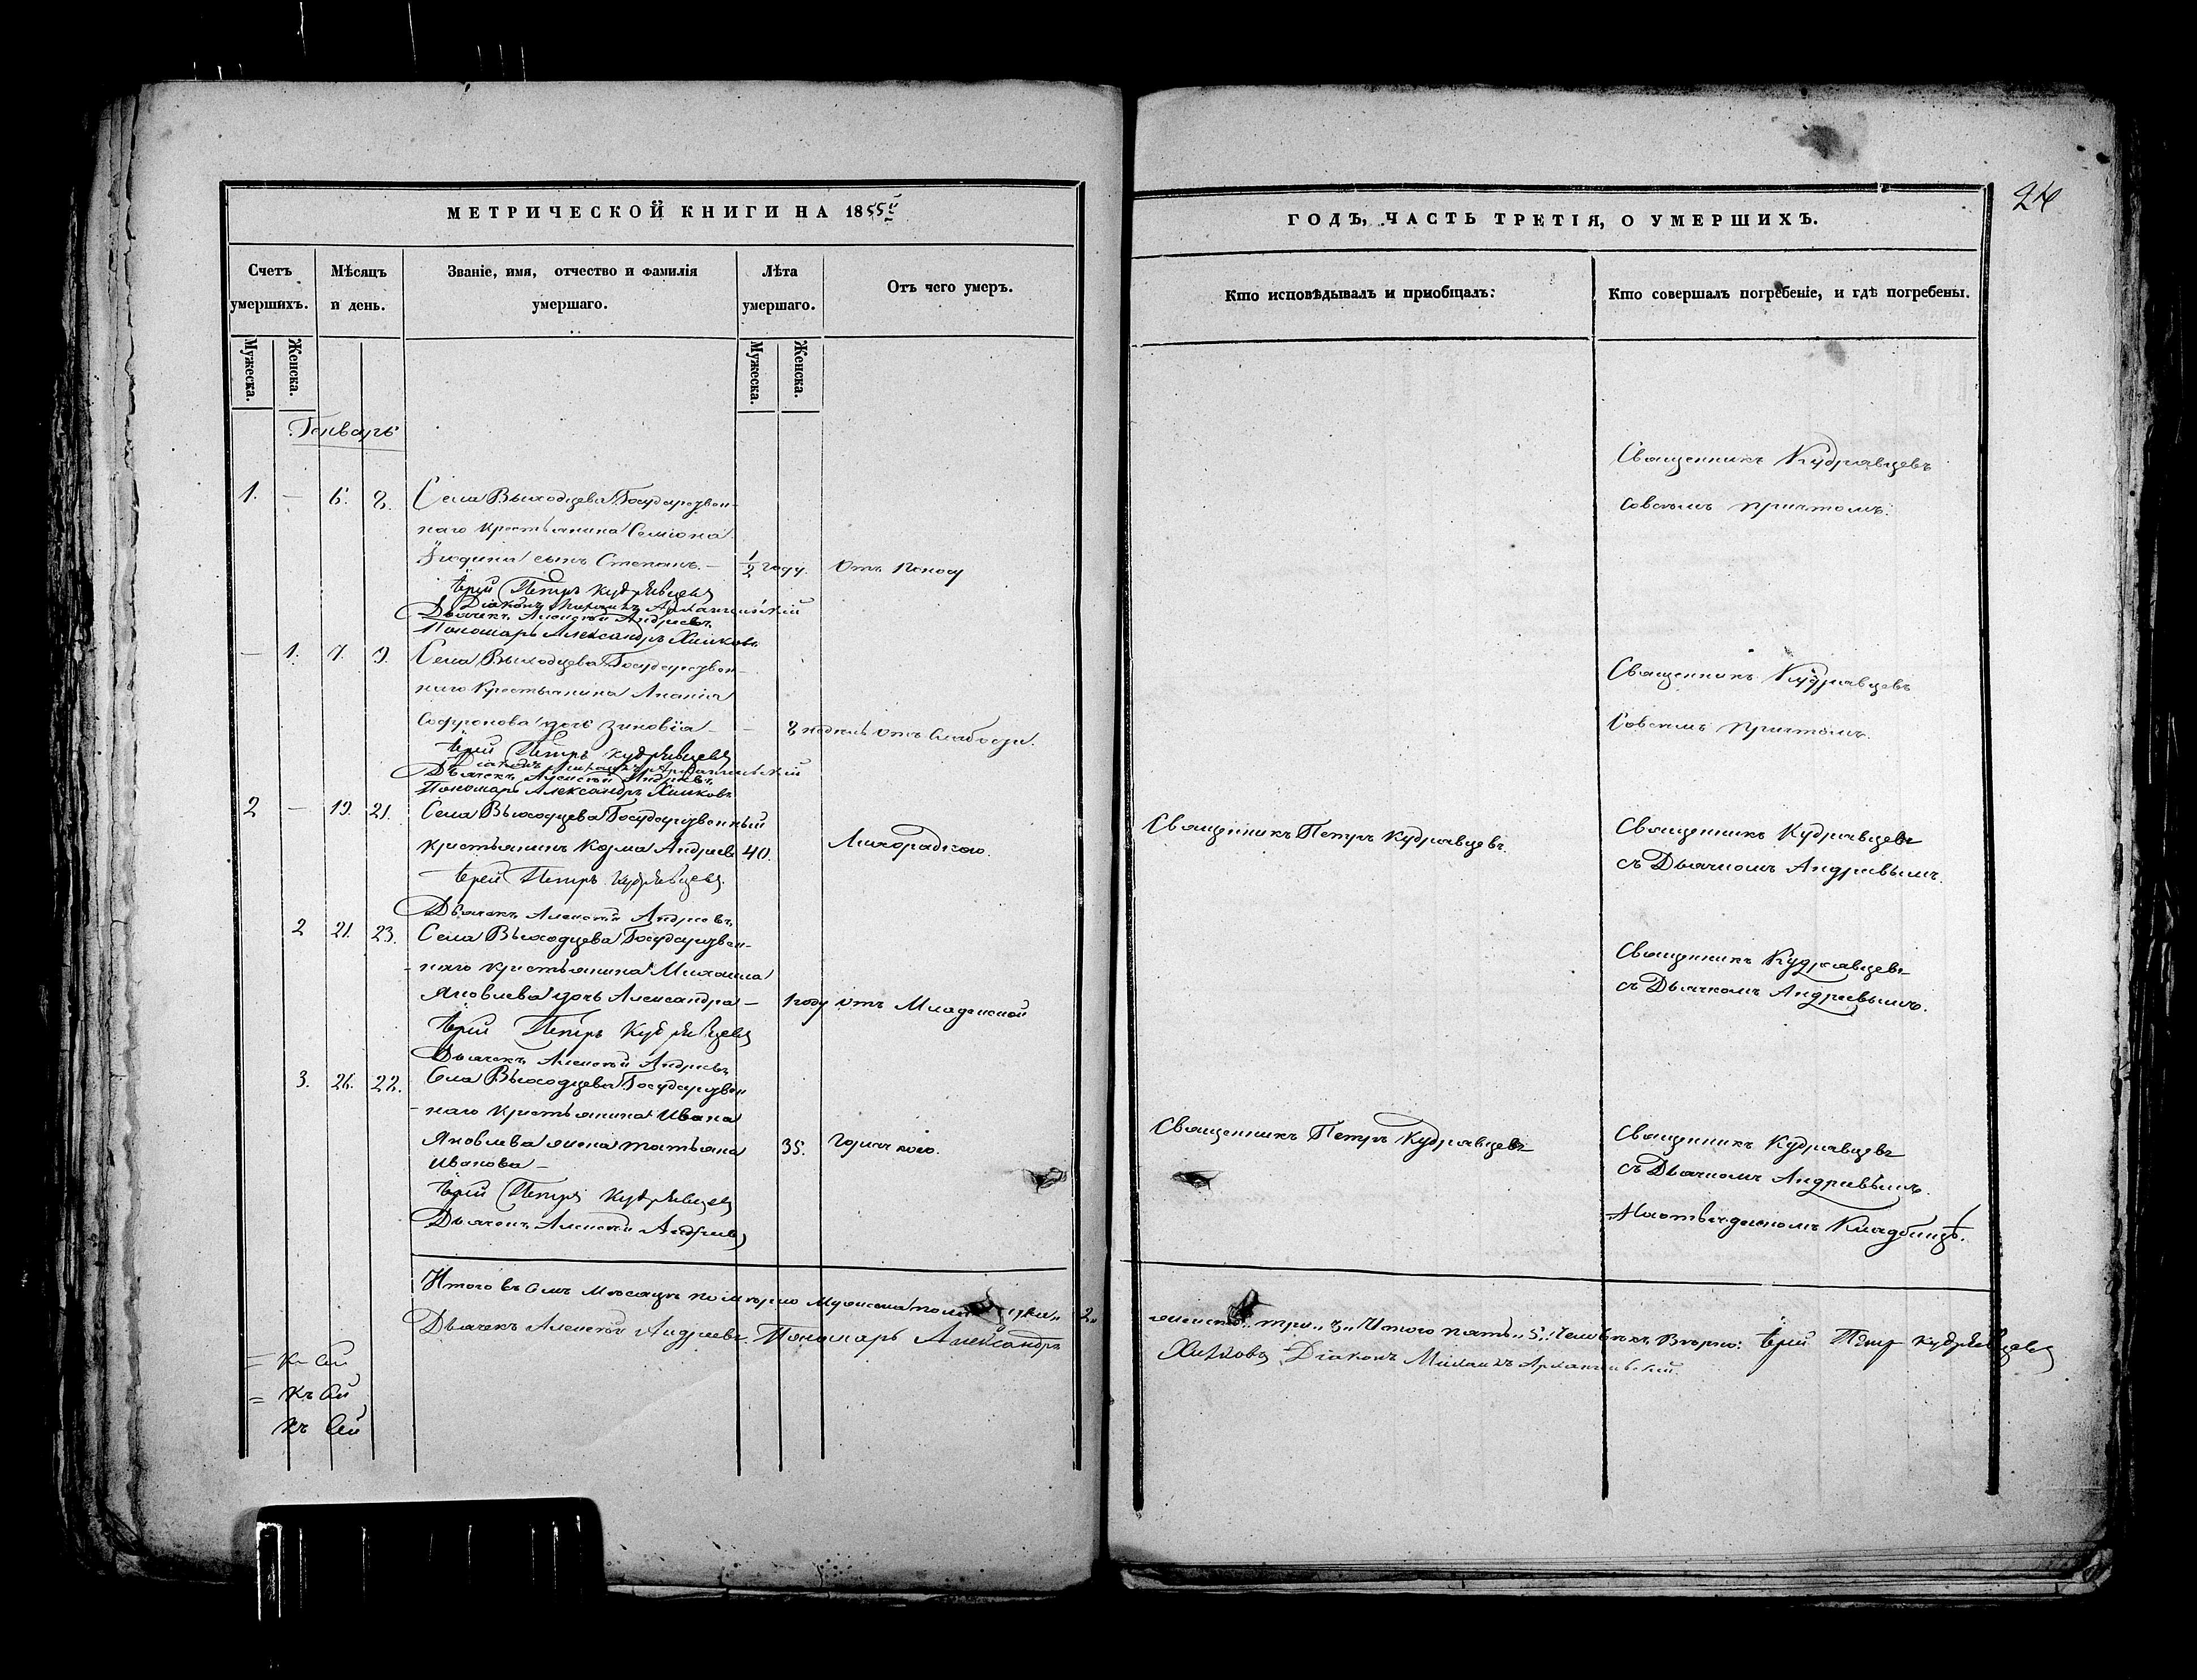 МЕТРИЧЕСКОЙ КНИГИ НА 1855й
Счетъ умершихъ.
Мѣсяцъ и день.
Званіе, имя, отчество и фамилія умершаго.
Лѣта умершаго.
Отъ чего умеръ.
Мужеска.
Женска.
Мужеска.
Женска.
Генварь
1. — 6. 8. Села Выходцева Государствен-
наго крестьянина Семіона
сынъ Стефанъ. — 1/2 году. Отъ поносу
Іерей Петръ Кудрявцевъ
Діаконъ Михаилъ Архангельскій
Дьячекъ Алексѣй Андреевъ
Пономарь Александръ Хилковъ
— 1. 7. 9. Села Выходцева Государствен-
наго крестьянина Ананія
Софронова дочь Зиновія — — 8 недель отъ Слабости.
Іерей Петръ Кудрявцевъ
Діаконъ Михаилъ Архангельскій
Дьячекъ Алексѣй Андреевъ
Пономарь Александръ Хилковъ
2 — 19. 21. Села Выходцева Государственный
крестьянинъ Козма Андреевъ 40. Лихорадкою.
Іерей Петръ Кудрявцевъ.
Дьячекъ Алексѣй Андреевъ
2 21. 23. Села Выходцева Государствен-
наго крестьянина Михаила
Яковлева дочь Александра — 1 году отъ Младенской
Іерей Петръ Кудрявцевъ
Дьячекъ Алексѣй Андреевъ
3. 26. 22. Села Выходцева Государствен
наго крестьянина Ивана
Яковлева жена Татьяна 35. Горячкою.
Иванова —
Іерей Петръ Кудрявцевъ
Дьячекъ Алексѣй Андреевъ
Итого въ семъ Месяцѣ померло Мужеска пола 2
Дьячекъ Алексѣй Андреевъ. Пономарь Александръ
= Къ Сей
= Къ Сей
Къ Сей
ГОДЪ, ЧАСТЬ ТРЕТІЯ, О УМЕРШИХЪ.
Кто исповѣдывалъ и приобщалъ:
Кто совершалъ погребеніе, и гдѣ погребены.
Священникъ Кудрявцевъ
Совсемъ причтомъ.
Священникъ Кудрявцевъ
Совсемъ причтомъ.
Священникъ Петръ Кудрявцевъ.
Священникъ Кудрявцевъ
съ Дьячкомъ Андреевымъ.
Священникъ Кудрявцевъ
съ Дьячкомъ Андреевымъ.
Священникъ Петръ Кудрявцевъ
Священникъ Кудрявцевъ
съ Дьячкомъ Андреевымъ.
На отведенномъ Кладбищѣ.
женска „три„ 3„ Итого пять„ 5„ Человѣкъ Вѣрно: Іерей Петръ Кудрявцевъ
Хилковъ Діаконъ Михаилъ Архангельскій.